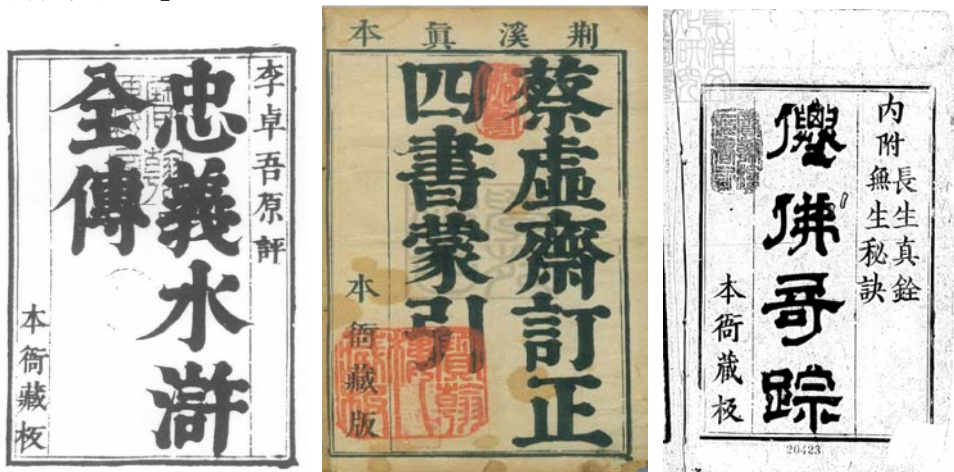 李卓吾原評
忠義水滸
全傳
本衙藏板
荆溪眞本
蔡虛齋訂正
四書蒙引
本衙藏版
内附
長生真銓
無生秘訣
僊佛竒踪
本衙藏板
20423